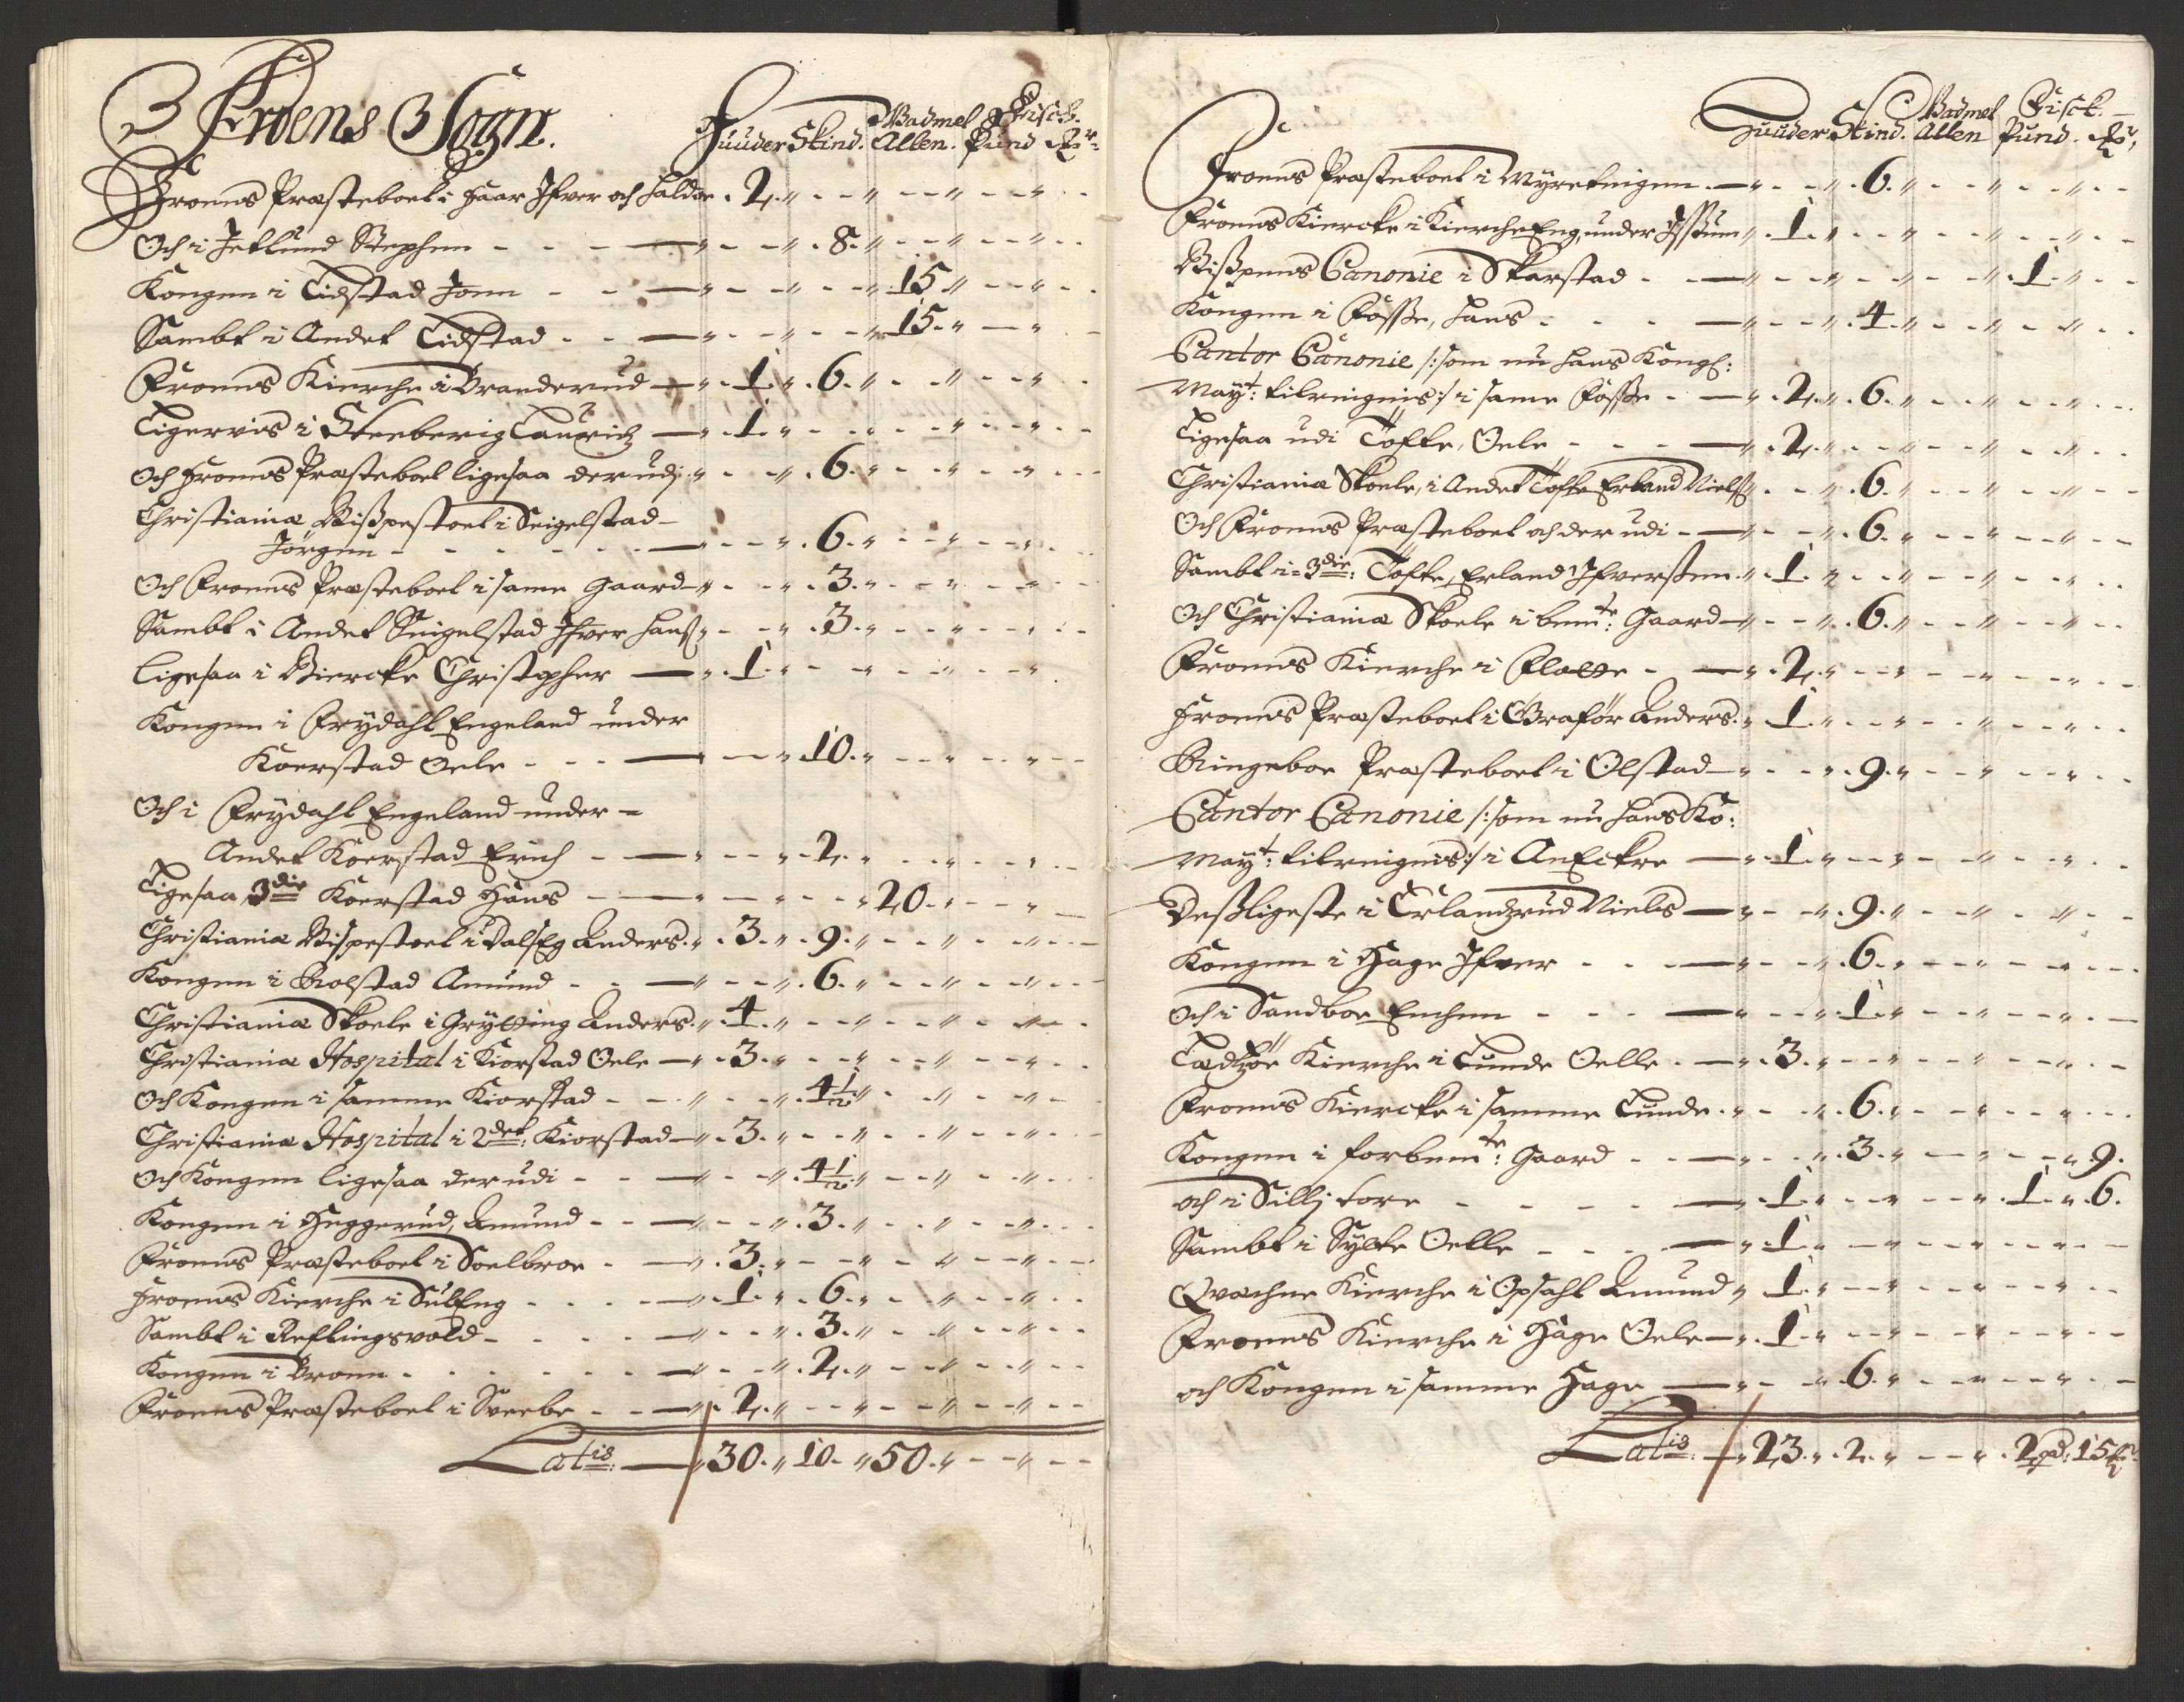 Froens Sogn.
Huuder Skind. Wadmel Allen. Fisck. Pund
Froens Præsteboel i Haar Ifver och Haldor . 2
Och i Jetlund Stephen . 8
Kongen i Tidstad Joen 15
Sambt i Andet Tidstad 15
Froens Kierche i Branderud 1 . 6
Ligervis i Steeberig Lauridz 1
Och Froens Præsteboel ligesaa derudj 6
Christiania Bißpestoel i Seigelstad
Jörgen 6
Och Froens Præsteboel i same Gaard 3
Sambt i Andet Seigelstad Ifver Hanß 3
Ligesaa i Biercke Christopher 1
Kongen i Frydahl Engeland under
Koerstad Oele 10
Och i Frydahl Engeland under
Andet Koerstad Erich 2
Ligesaa 3die Koerstad Hans 20
Christiania Bispestoel i DalsEg Anders 3 . 9
Kongen i Kolstad Amund 6
Christiania Skoele i Grytting Anders 4
Christiania Hospital i Kiorstad Oele 3
Och Kongen i samme Kiorstad 4½
Christiania Hospital i 2det: Kiorstad 3
Och Kongen ligesaa derudi 4½
Kongen i Heggerud, Amund 3
Froens Præsteboel i Soelbroe 3
Froens Kierche i SulEng 1 . 6
Sambt i Reflingsvold 3
Kongen i Broen 2
Froens Præsteboel i Sveebe 2
Latis: 30 . 10 . 50
Huuder Skind. Wadmel Allen Fisck. Pund.
Froens Præsteboel i Myreteigen 6
Froens Kiercke i KiercheEng, under Ißum 1
Bißpens Canonie i Skarstad 1
Kongen i Foßse, Hans 4
Cantor Canonie /: som nu Hans Kongl:
Mayt: tilreignis :/ i same Foßse 2 . 6
Ligesaa udi Tofte, Oele 2
Christiania Skoele, i Andet Tofte Erland Nielß 6
Och Froens Præsteboel och derudi 6
Sambt i 3die: Tofte, Erland Ifverßen 1
Och Christiania Skoele i bemte: Gaard 6
Froens Kierche i Flatte 2
Froens Præsteboel i Graför Anders 1
Ringeboe Præsteboel i Olstad 9
Cantor Canonie /: som nu Hans Ko:
Mayt: tilreignis :/ i AnEckre 1
Deßligeste i Erlandzrud Niels 9
Kongen i Hage Ifver 6
Och i Sandboe Enchen 1
Lædzöe Kierche i Lunde Oelle 3
Froens Kiercke i samme Lunde 6
Kongen i forbemte: Gaard 3 . 9
och i Sillj Tore 1 . 1 . 6
Sambt i Sylte Oelle 1
Qvachne Kierche i Opsahl Amund 1
Froens Kierche i Hage Oele 1
och Kongen i samme Hage 6
Latis: 23 . 2 . 2 pd: 15